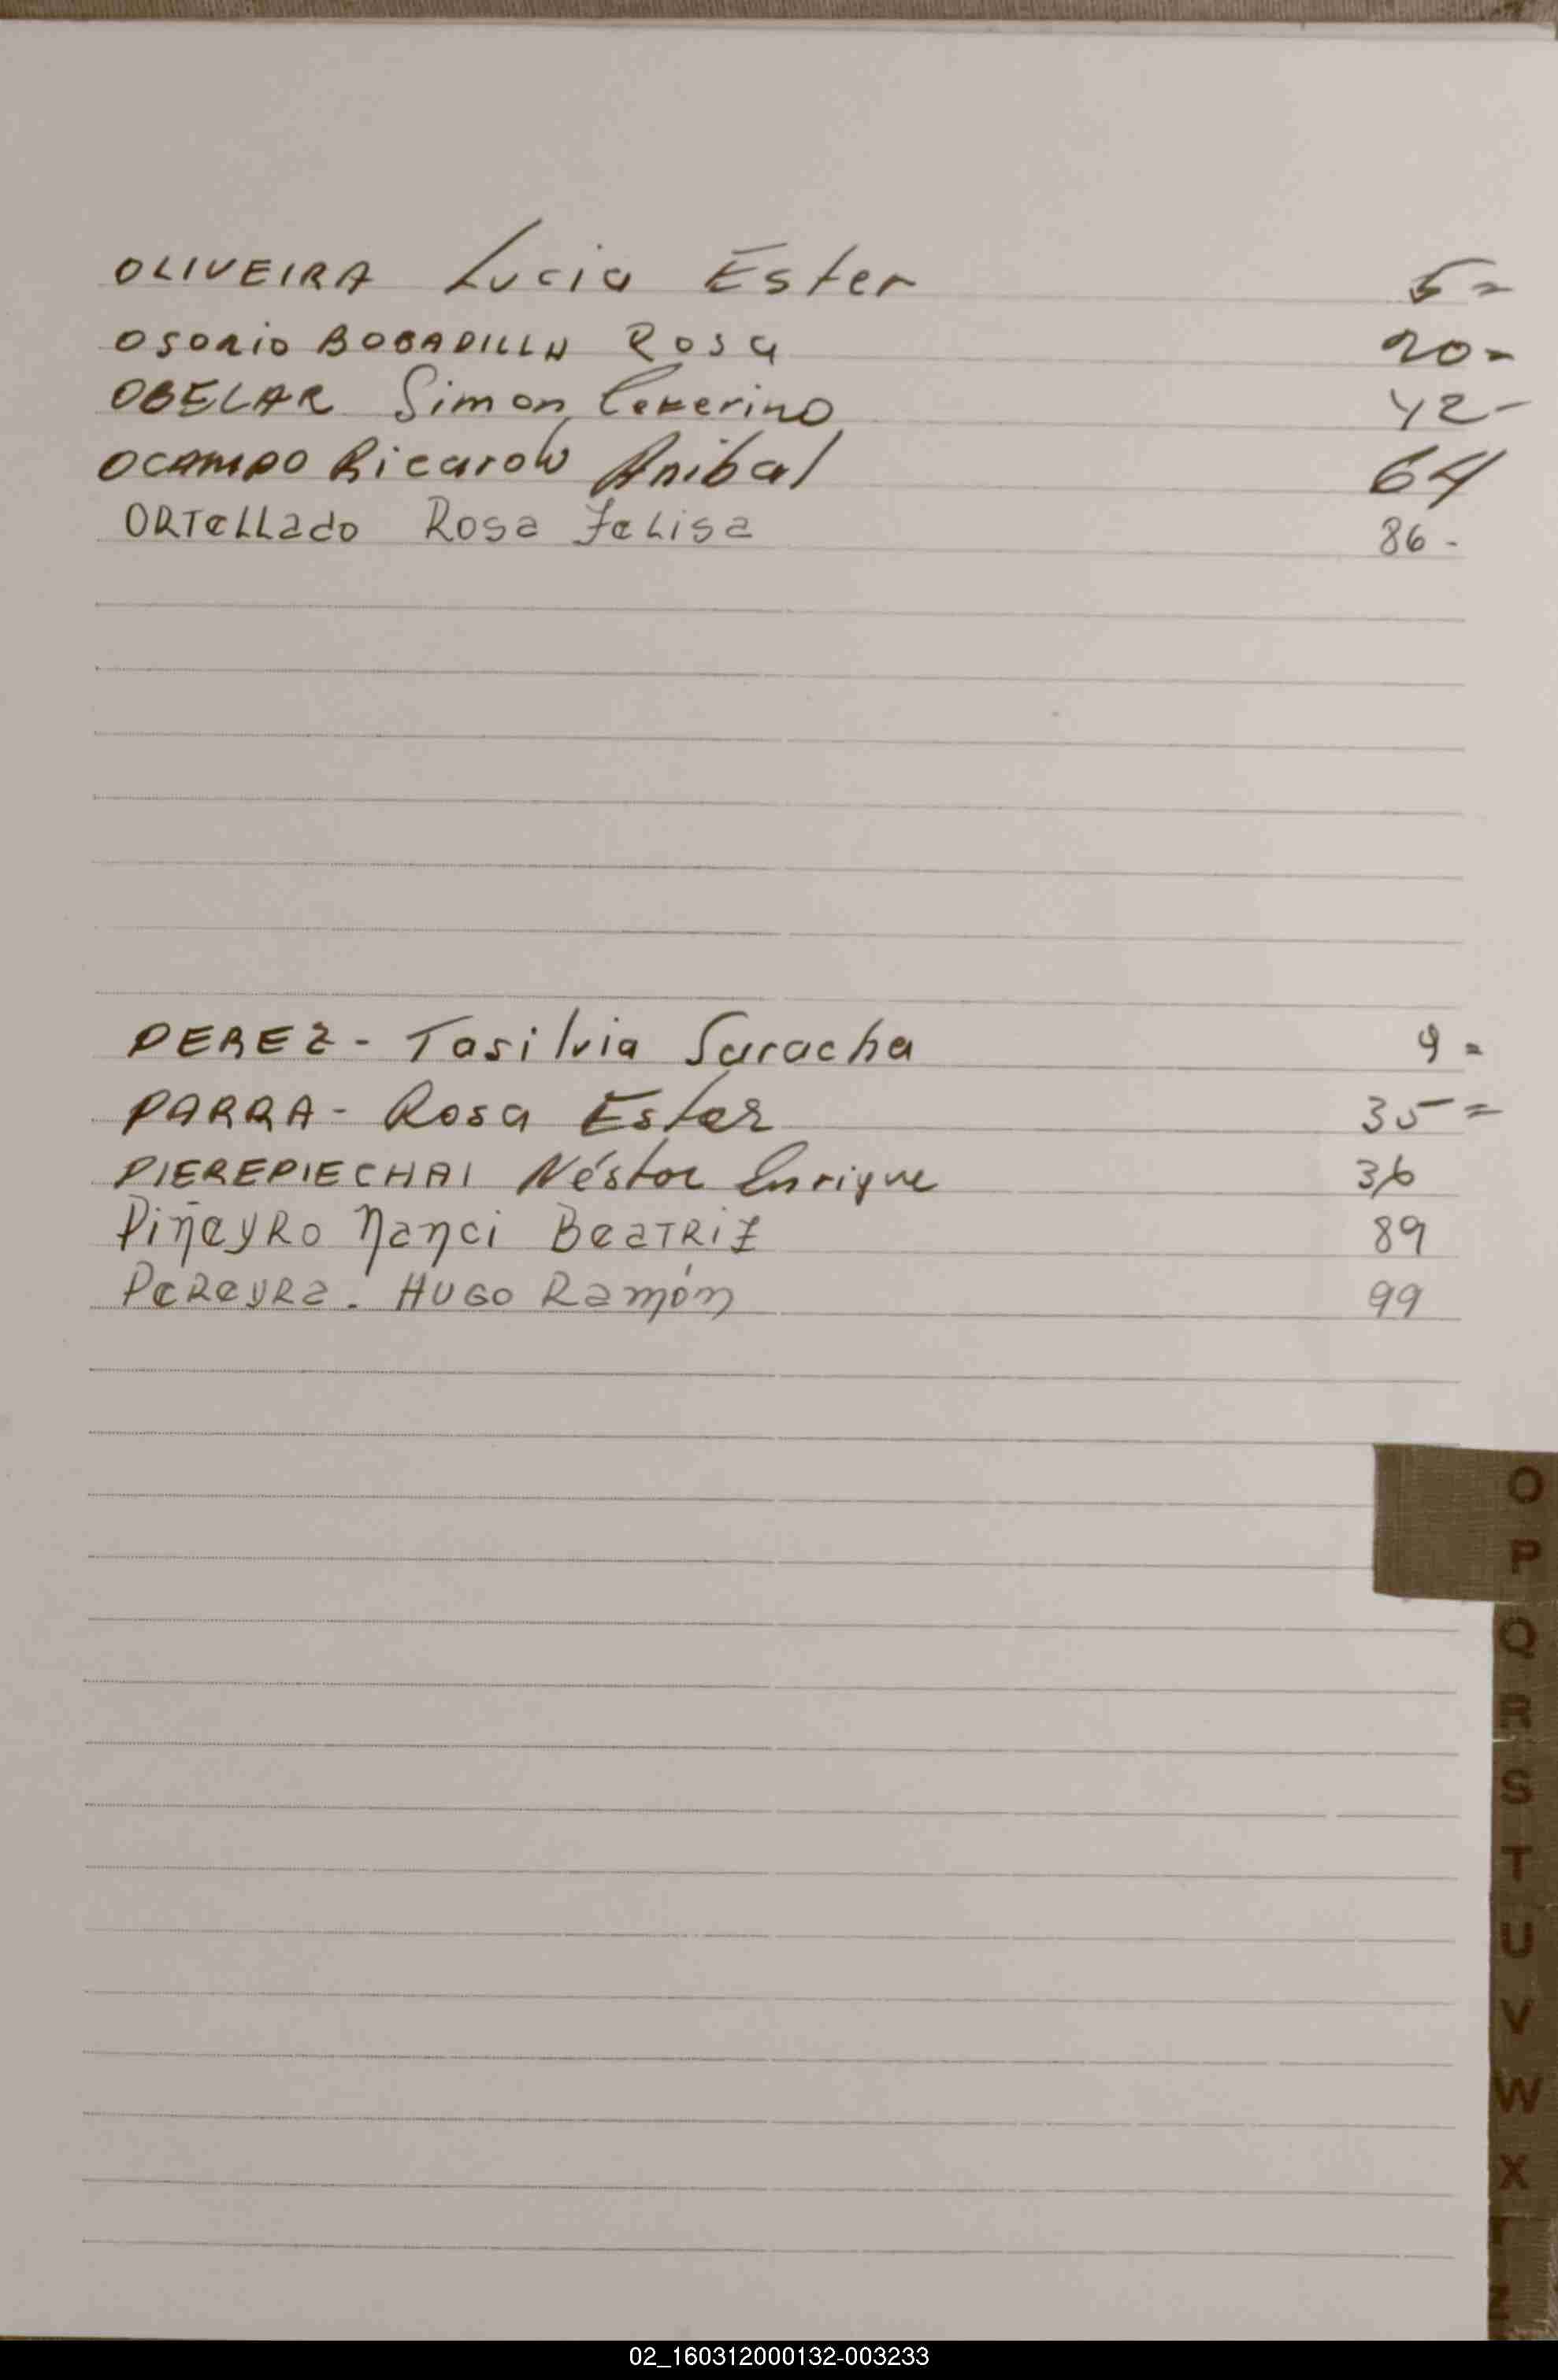 OLIVEIRA Lucia Ester 5=
OSORIO BOBADILLA Rosa 20=
OBELAR Simon Ceferino 42-
OCAMPO Ricardo Anibal 64
ORTeLLado Rosa FeLisa 86-
PEREZ - Tasilvia Saracha 9=
PARRA - Rosa Ester 35=
PIEREPIECHAI Néstor Enrique 36
PiñeyRo Nanci BeaTRiz 89
PeReyRa. HUGO Ramón 99
O
P
Q
R
S
T
U
V
W
X
Z
02_160312000132-003233